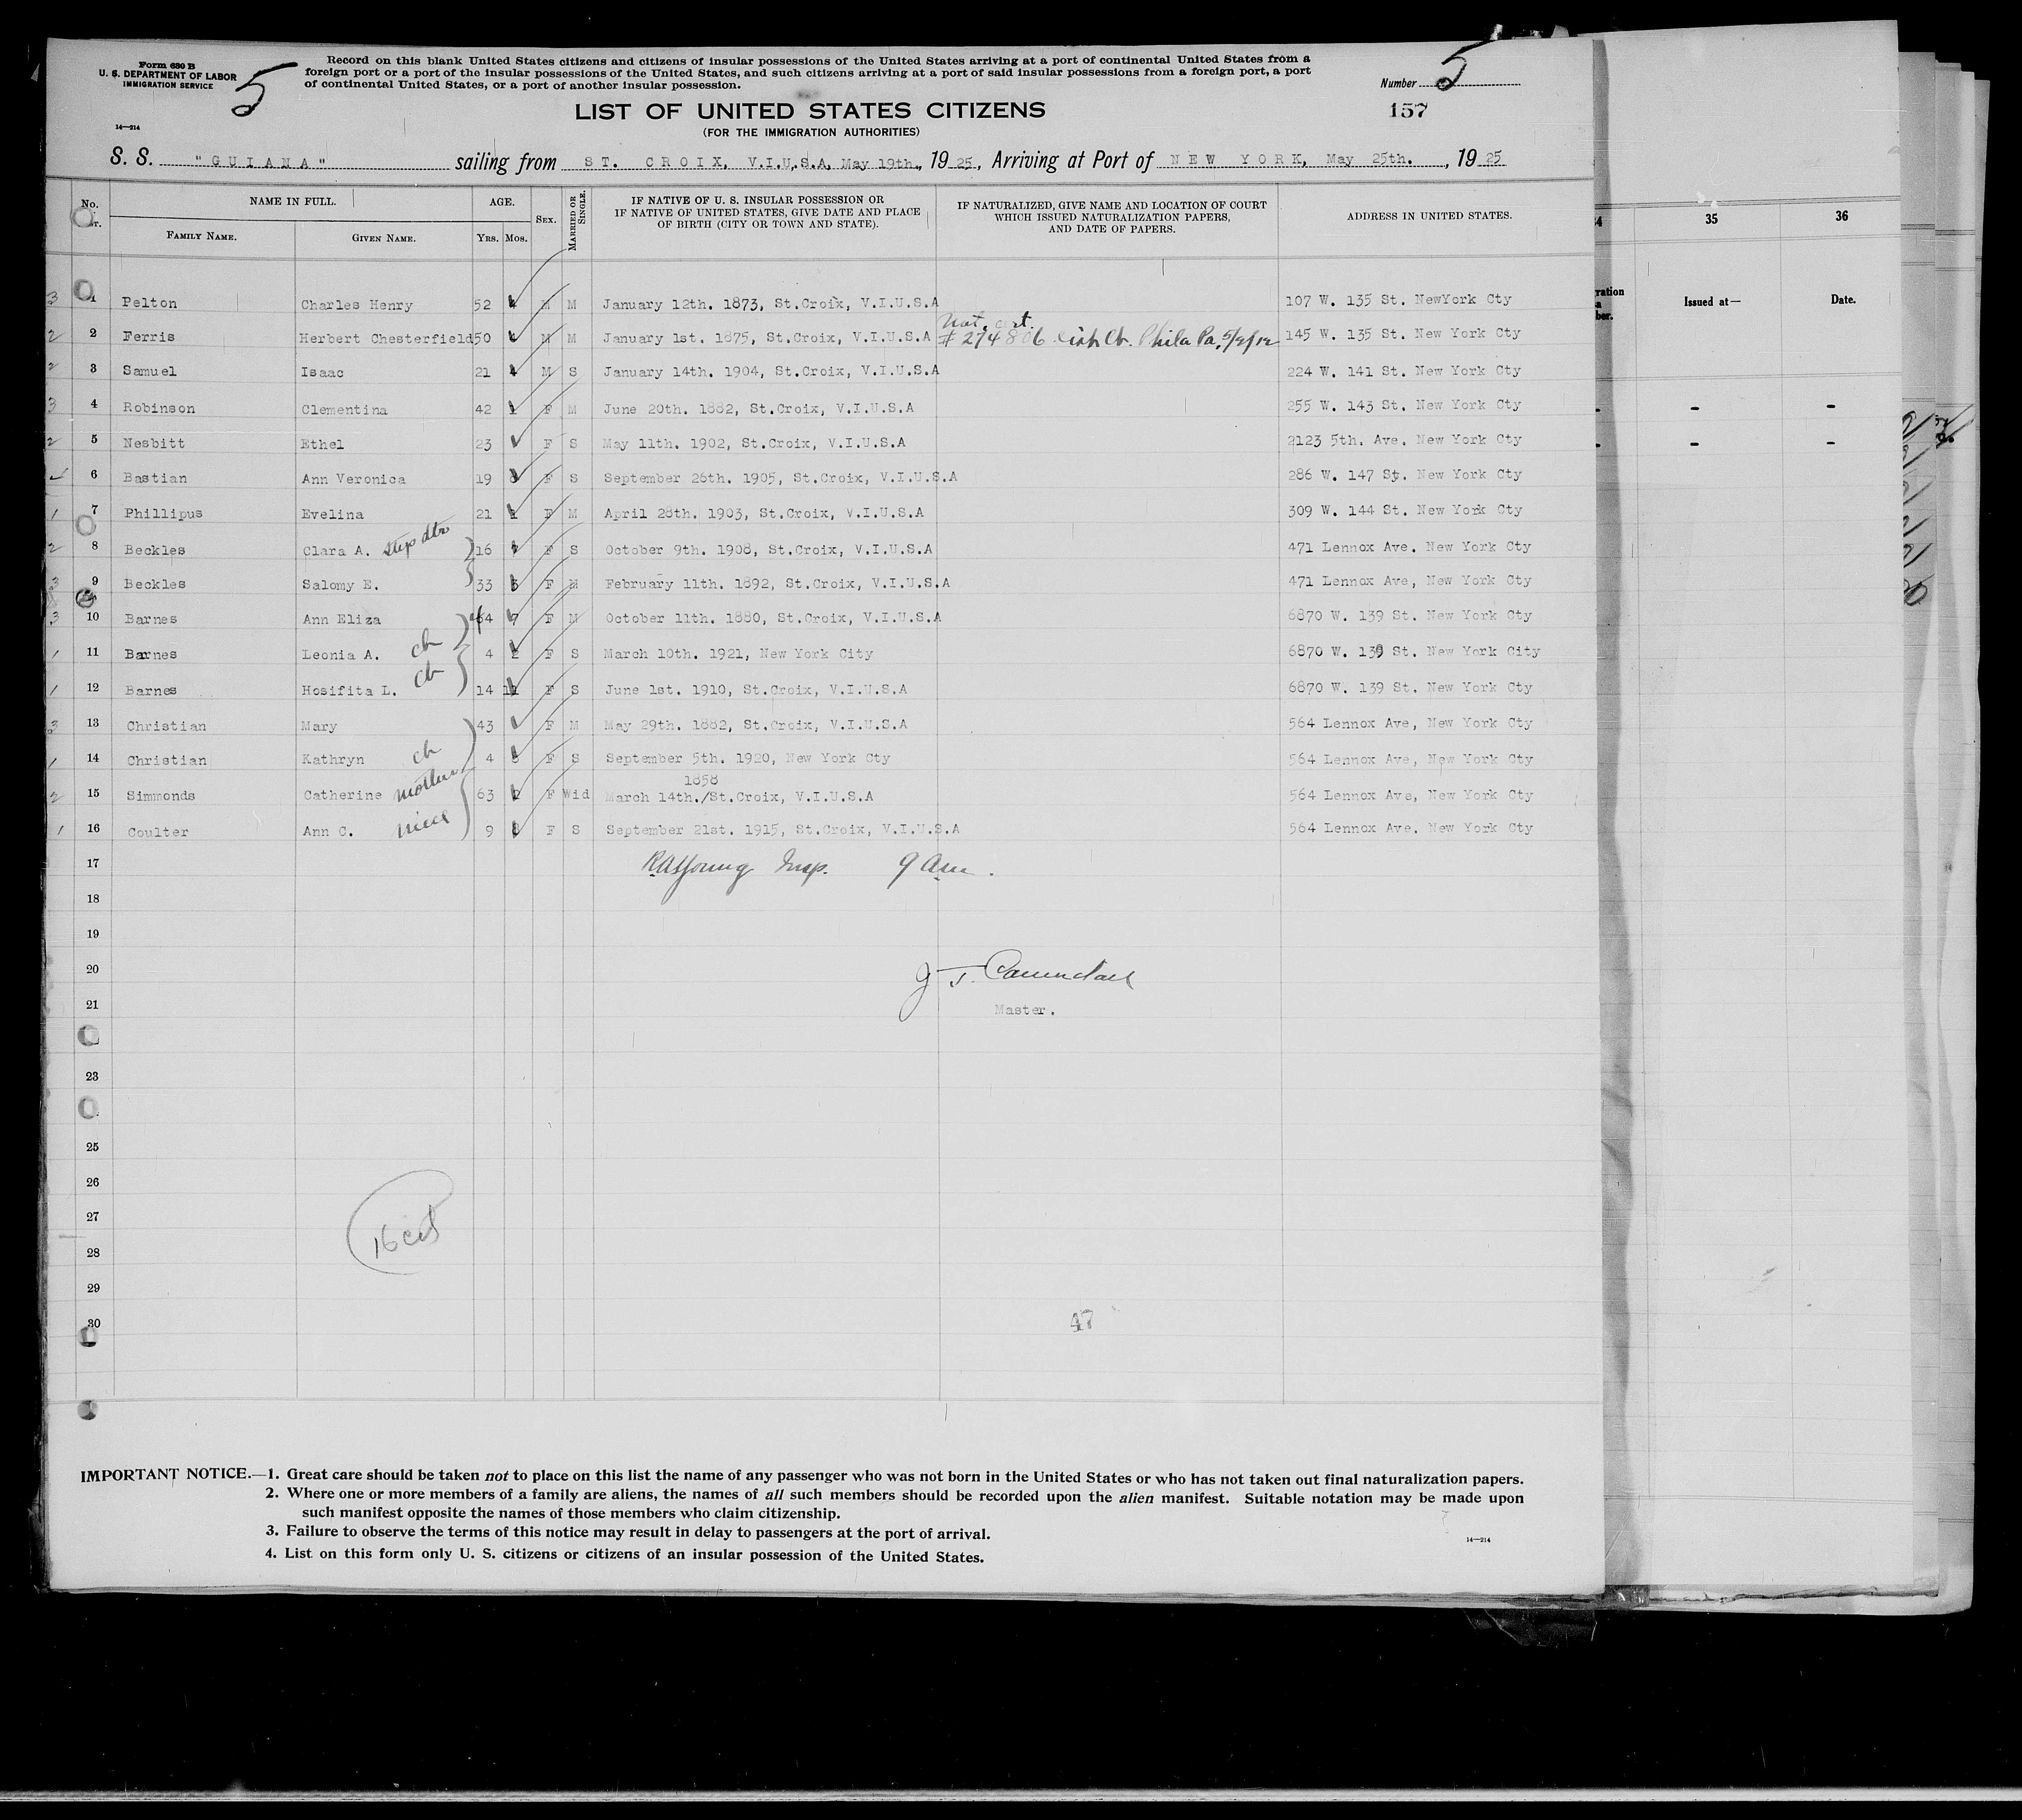 Form 630 B
U. S. DEPARTMENT OF LABOR
IMMIGRATION SERVICE
5
Record on this blank United States citizens and citizens of insular possessions of the United States arriving at a port of continental United States from a
foreign port or a port of the insular possessions of the United States, and such citizens arriving at a port of said insular possessions from a foreign port, a port
of continental United States, or a port of another insular possession.
Number 5
157
LIST OF UNITED STATES CITIZENS
(FOR THE IMMIGRATION AUTHORITIES)
14—214
S. S. "GUIANA" sailing from ST. CROIX, V.I.U.S.A, May 19th., 1925, Arriving at Port of NEW YORK, May 25th., 1925
No. NAME IN FULL. AGE. SEX. MARRIED OR SINGLE. IF NATIVE OF U. S. INSULAR POSSESSION OR IF NATIVE OF UNITED STATES, GIVE DATE AND PLACE OF BIRTH (CITY OR TOWN AND STATE). IF NATURALIZED, GIVE NAME AND LOCATION OF COURT WHICH ISSUED NATURALIZATION PAPERS, AND DATE OF PAPERS. ADDRESS IN UNITED STATES.
FAMILY NAME. GIVEN NAME. YRS. MOS.
3 1 Pelton Charles Henry 52 M M January 12th. 1873, St.Croix, V.I.U.S.A 107 W. 135 St. NewYork Cty
Nat. cert.
2 2 Ferris Herbert Chesterfield 50 M M January 1st. 1875, St.Croix, V.I.U.S.A # 274806 Phila Pa, 145 W. 135 St. New York Cty
2 3 Samuel Isaac 21 M S January 14th. 1904, St.Croix, V.I.U.S.A 224 W. 141 St. New York Cty
3 4 Robinson Clementina 42 F M June 20th. 1882, St.Croix, V.I.U.S.A 255 W. 143 St. New York Cty
2 5 Nesbitt Ethel 23 F S May 11th. 1902, St.Croix, V.I.U.S.A 2123 5th. Ave. New York Cty
6 Bastian Ann Veronica 19 F S September 26th. 1905, St.Croix, V.I.U.S.A 286 W. 147 St. New York Cty
1 7 Phillipus Evelina 21 F M April 28th. 1903, St.Croix, V.I.U.S.A 309 W. 144 St. New York Cty
2 8 Beckles Clara A. step dtr 16 F S October 9th. 1908, St.Croix, V.I.U.S.A 471 Lennox Ave. New York Cty
3 9 Beckles Salomy E. 33 F M February 11th. 1892, St.Croix, V.I.U.S.A 471 Lennox Ave, New York Cty
3 10 Barnes Ann Eliza 44 F M October 11th. 1880, St.Croix, V.I.U.S.A 6870 W. 139 St. New York Cty
1 11 Barnes Leonia A. ch 4 2 F S March 10th. 1921, New York City 6870 W. 139 St. New York City
1 12 Barnes Hosifita L. ch 14 11 F S June 1st. 1910, St.Croix, V.I.U.S.A 6870 W. 139 St. New York Cty
3 13 Christian Mary 43 F M May 29th. 1882, St.Croix, V.I.U.S.A 564 Lennox Ave, New York Cty
1 14 Christian Kathryn ch 4 8 F S September 5th. 1920, New York Cty 564 Lennox Ave, New York Cty
1858
2 15 Simmonds Catherine mother 63 2 F Wid March 14th./St.Croix, V.I.U.S.A 564 Lennox Ave, New York Cty
1 16 Coulter Ann C. niece 9 8 F S September 21st. 1915, St.Croix, V.I.U.S.A 564 Lennox Ave. New York Cty
17 Young Insp. 9 am.
18
19
20 J T.
21 Master.
23
25
26
27
16 cit
28
29
30
47
IMPORTANT NOTICE.—1. Great care should be taken not to place on this list the name of any passenger who was not born in the United States or who has not taken out final naturalization papers.
2. Where one or more members of a family are aliens, the names of all such members should be recorded upon the alien manifest. Suitable notation may be made upon
such manifest opposite the names of those members who claim citizenship.
3. Failure to observe the terms of this notice may result in delay to passengers at the port of arrival.
4. List on this form only U. S. citizens or citizens of an insular possession of the United States.
14—214
35 36
Issued at— Date.